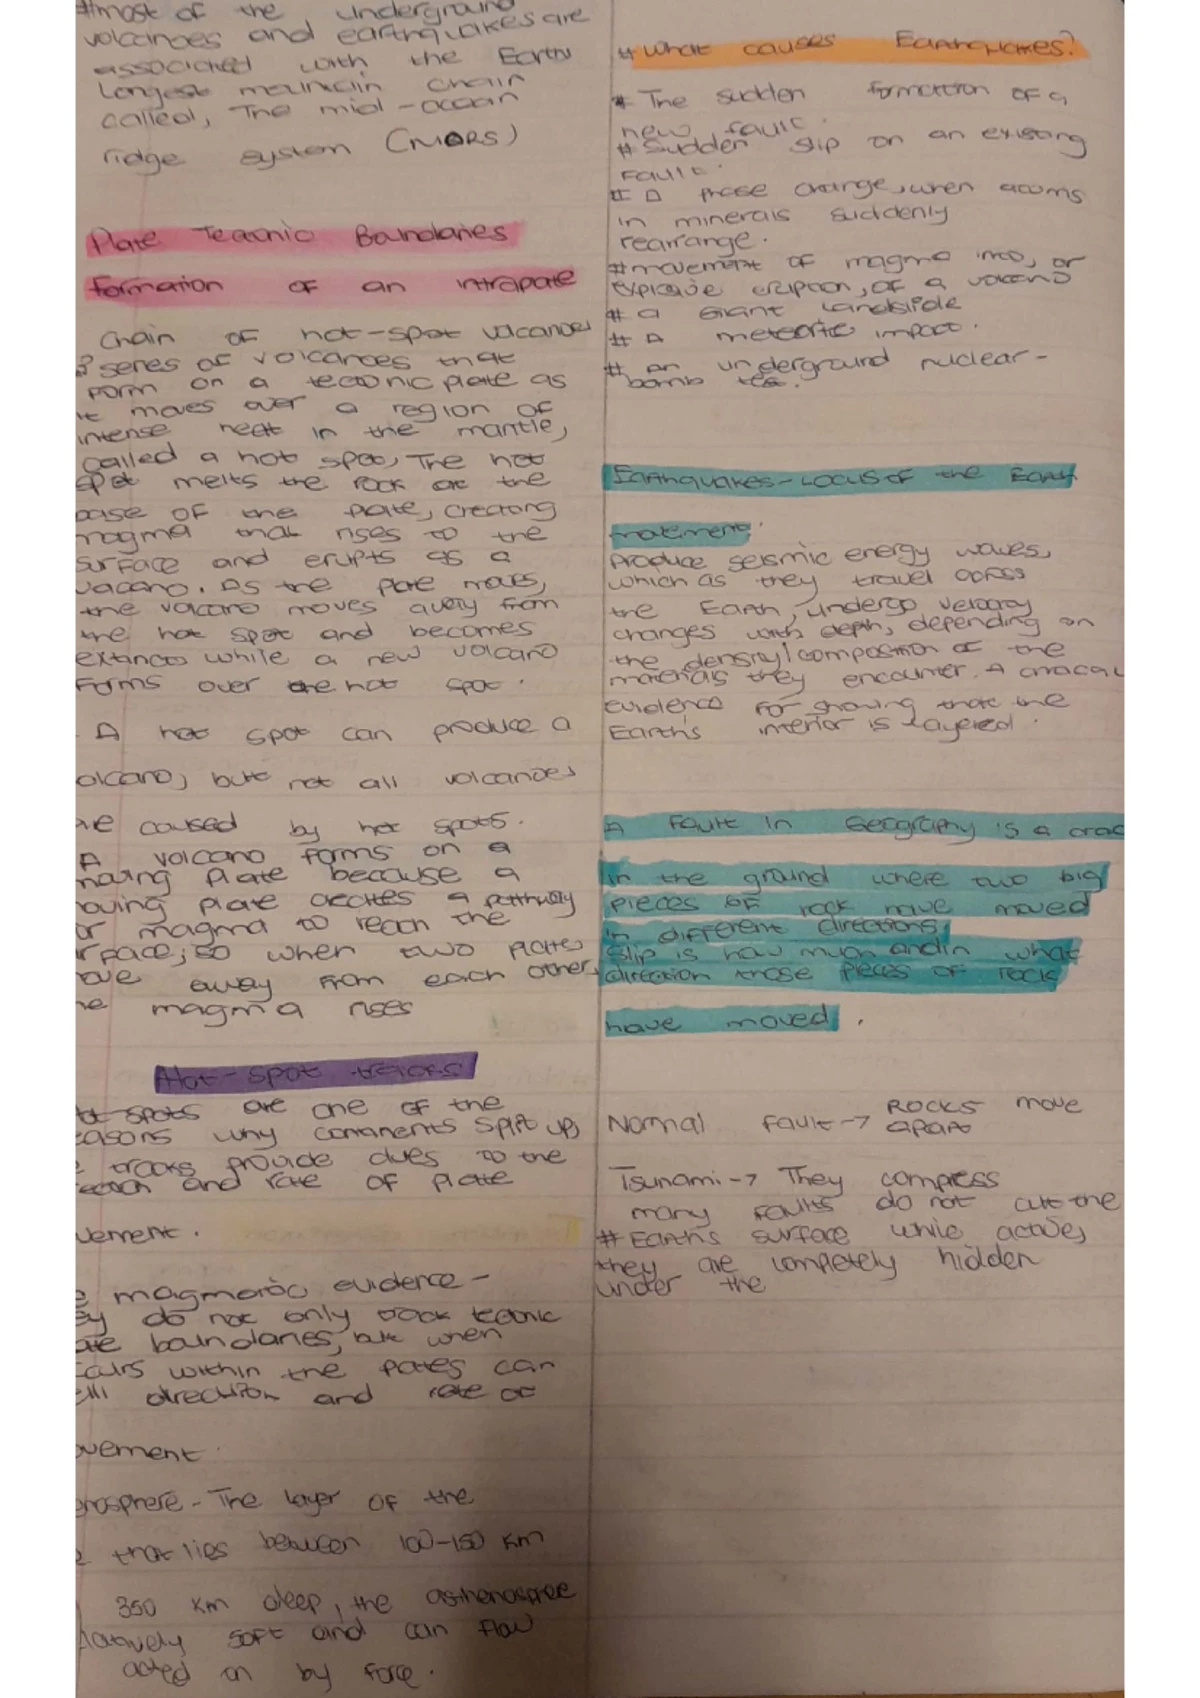 #most of the underground
volcanoes and earthquakes are
associated with the Earths
Longest mountain chain
called, The mid-ocean
ridge system (MORS)
Plate Tectonic Boundaries
formation of an intraplate
Chain of hot-spot volcanoes
series of volcanoes that
form on a tectonic plate as
it moves over a region of
intense heat in the mantle,
called a hot spot, The hot
spot melts the rock at the
base of the plate, creating
magma that rises to the
surface and erupts as a
vacano. As the plate moves,
the volcano moves away from
the hot spot and becomes
extinct while a new volcano
forms over the hot spot.
A hot spot can produce a
olcano, but not all volcanoes
are caused by hot spots.
A volcano forms on a
moving plate because a
moving plate creates a pathway
or magma to reach the
rface; so when two plates
ove away from each other,
he magma rises
Hot-spot tracks
ot spots are one of the
easons why continents split up,
e tracks provide clues to the
and rate of plate
vement.
e magmatic evidence -
ey do not only track tectonic
ate boundaries, but when
occurs within the plates can
ell direction and rate of
ovement.
enosphere - The layer of the
e that lies between 100-150 km
350 km deep, the asthenospree
soft and can flow
acted on by force.
# What causes Earthquakes?
# The sudden formation of a
new fault.
# Sudden slip on an existing
Fault.
# A phase change, when atoms
in minerals suddenly
rearrange.
#movement of magma into, or
explosive eruption, of a volcano
# a Giant Landslide
# A meteorite impact.
# an underground nuclear-
bomb test.
Earthquakes - Locus of the Earth
movement.
produce seismic energy waves,
which as they travel across
the Earth, undergo velocity
changes with depth, depending on
the density/composition of the
materials they encounter. A
evidence for showing that the
Earth's interior is layered.
A fault in Geography is a crac
in the ground where two big
pieces of rock have moved
in different directions,
Slip is how much and in what
direction those pieces of rocks
have moved.
Normal fault -> Rocks move
apart
Tsunami -> They compress
many faults do not cut the
# Earth's surface while active,
they are completely hidden
under the